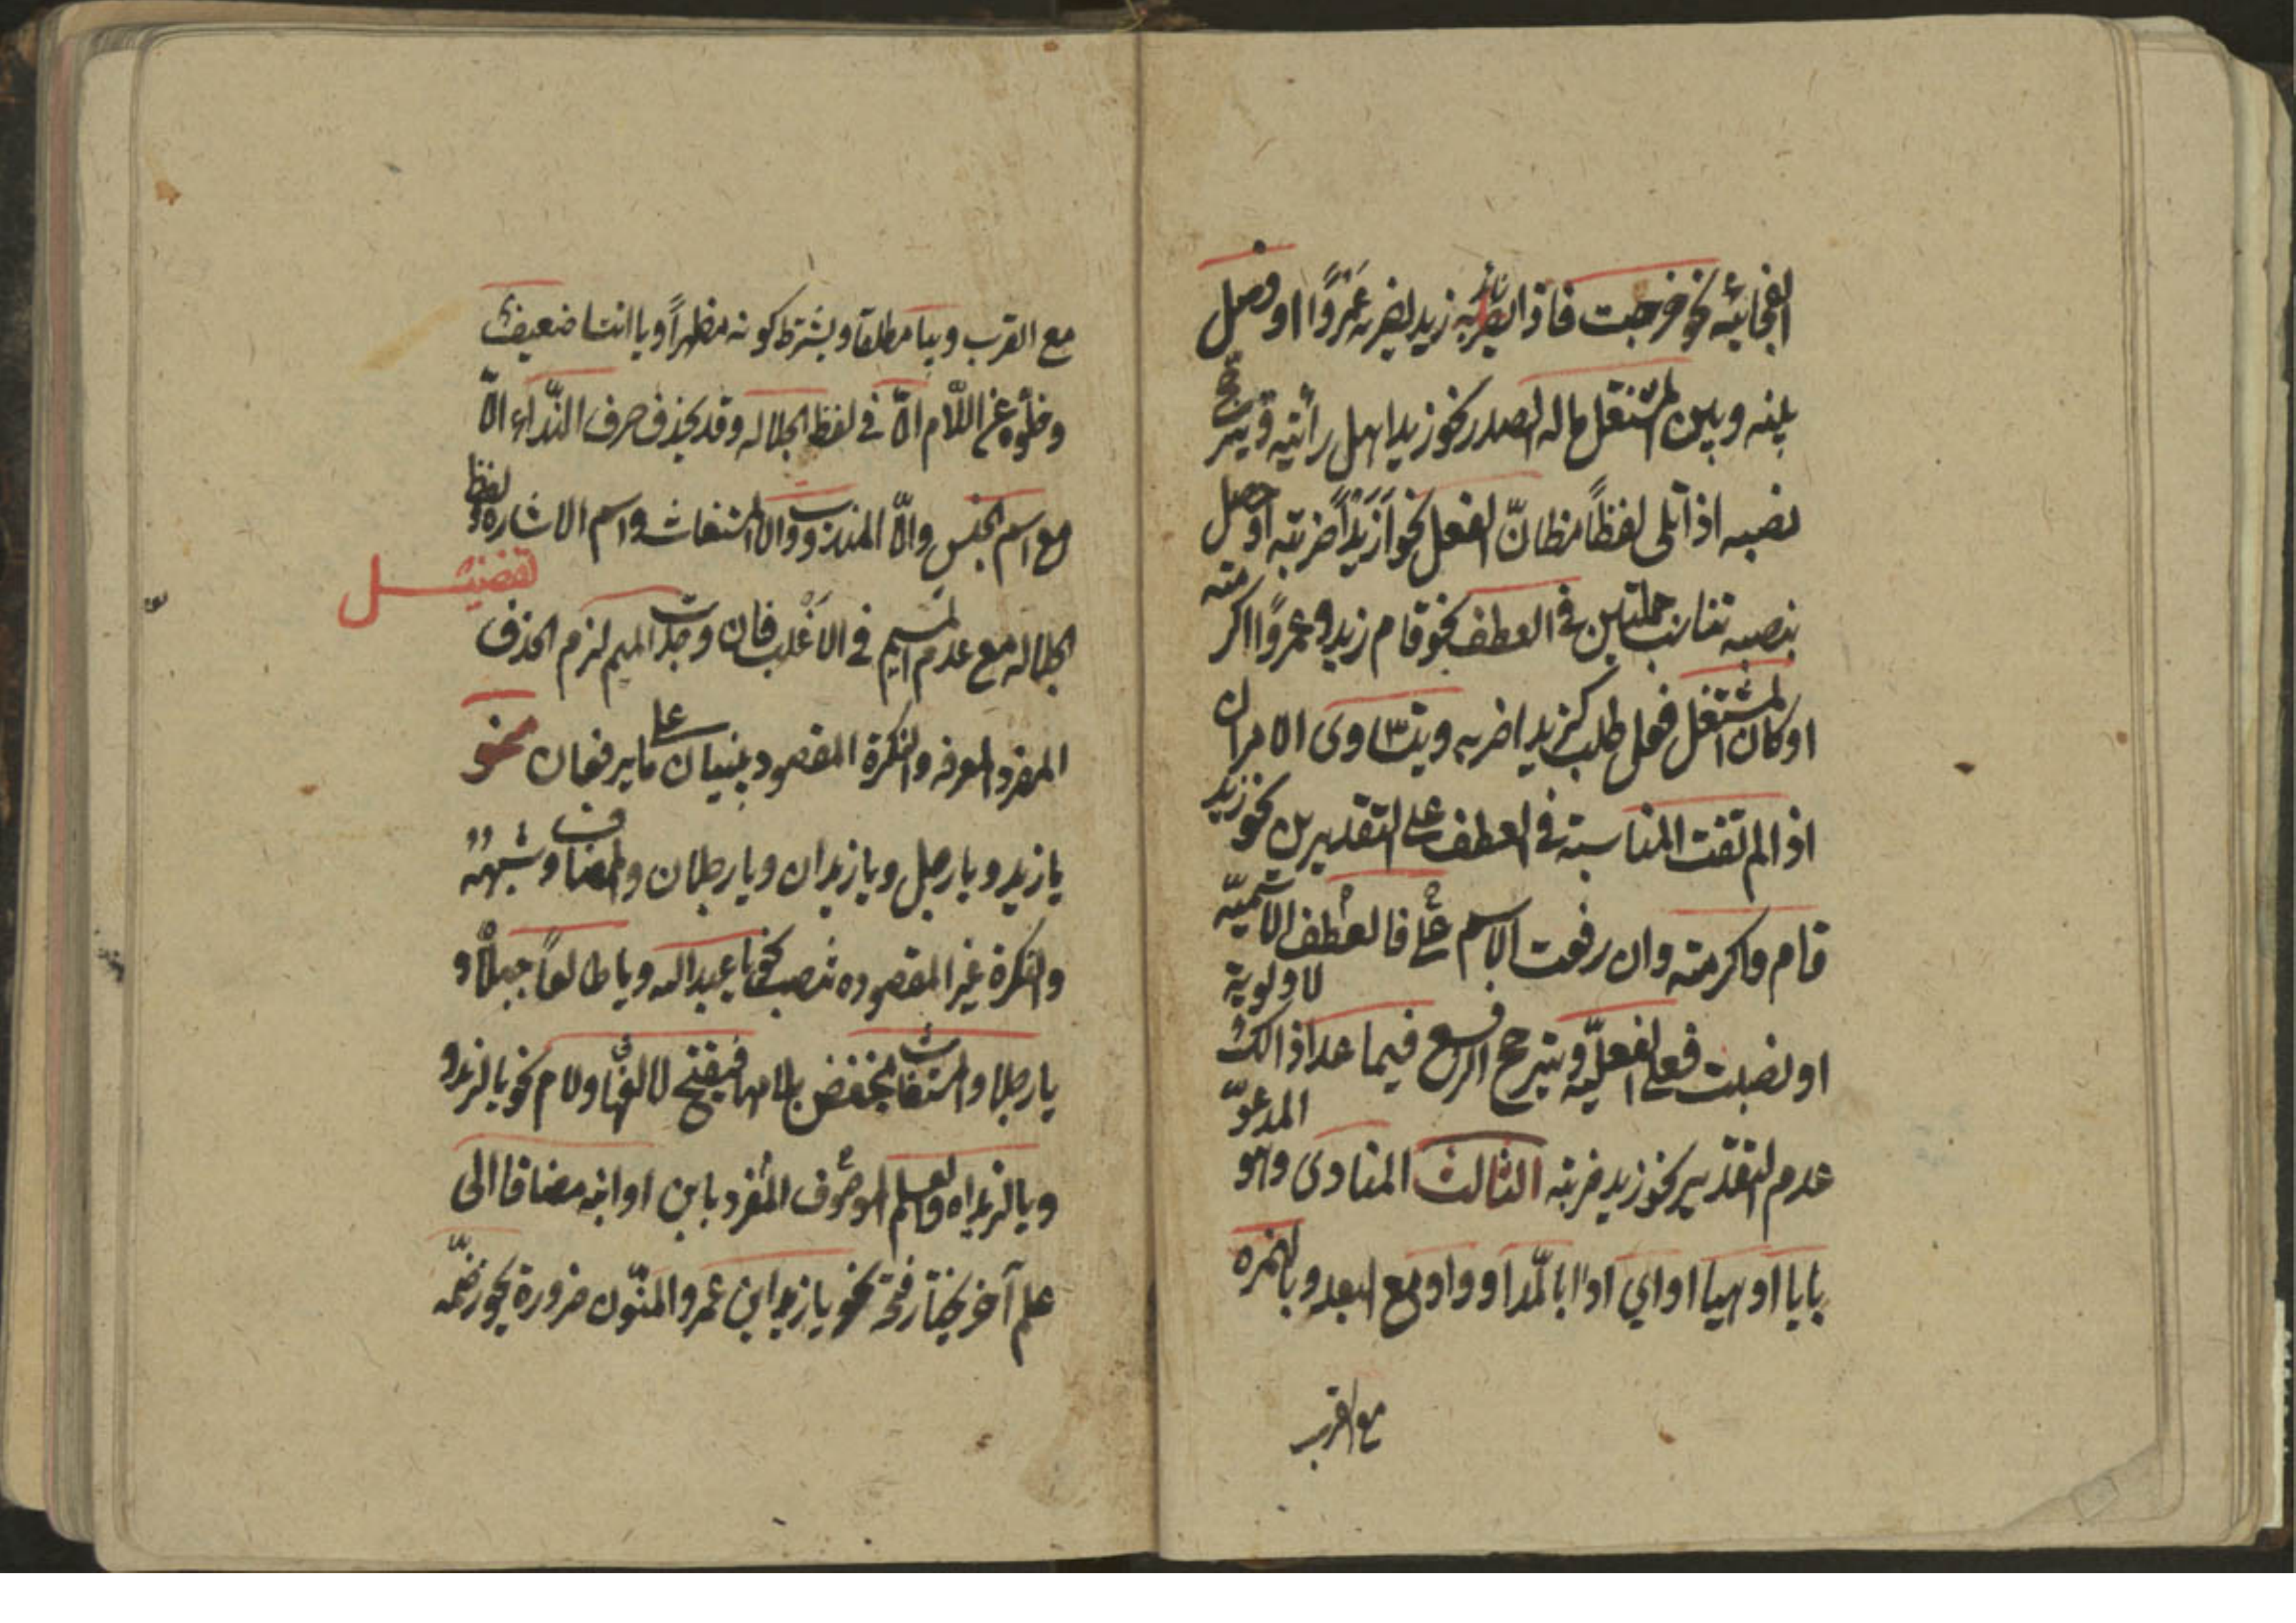 الفجائيه نحو خرجت فاذا زيد يضربه عَمْرٌو او فصل
بينه وبين المشتغل ماله الصدر نحو زيدا هل رأيته ويترجّح
نصبه اذا تلى لفظاً مظانّ الفعل نحو اَزَيْداً ضربته او حصل
بنصبه تناسب جملتين فى العطف نحو قام زيد وعمروًا اكرمته
او كان المشتغل فعل طلب كزيدا اضربه ويتساوى الامران
اذا لم تفت المناسبة فى العطف على التقديرين نحو زيد
قام واكرمته وان رفعت فالعطف على الاسميّه
او نصبت فعلى الفعليّه ويترجح الرفع فيما عدا ذالك لاولوية
عدم التقدير نحو زيد ضربته الثالث المنادى وهو المدعوّ
بايا او هيا او اي او ا بالمدّ او وا مع البعد وبالهمزه
مع القرب
مع القرب وبيا مطلقا ويشترط كونه مظهراً ويا انت ضعيف
وخلوّه عن اللّام الاّ فى لفظ الجلاله وقد يحذف حرف النّداء الاّ
مع اسم الجنس والاّ المندوب والمستغاث واسم الاشاره ولفظ
الجلاله مع عدم الميم فى الاَغْلب فان وجدت الميم لزم الحذف
تفضيل
المفرد المعرفه والنكرة المقصوده يبنيان على ما يرفعان نحو
يا زيد ويا رجل ويا زيدان ويا رجلان والمضاف وشبهه
والنكرة غير المقصوده تنصب نحو يا عبد الله ويا طالعاً جبلاً و
يا رجلا والمستغاث يخفض بلامها ويفتح لالفها ولا لام نحو يا لزيد و
ويا زيداه والعلم الموصوف المفرد بابن او ابنه مضافا الى
علم آخر يختار فتحه نحو يا زيد ابن عمرو والمنوّن ضرورة يجوز ضمّه